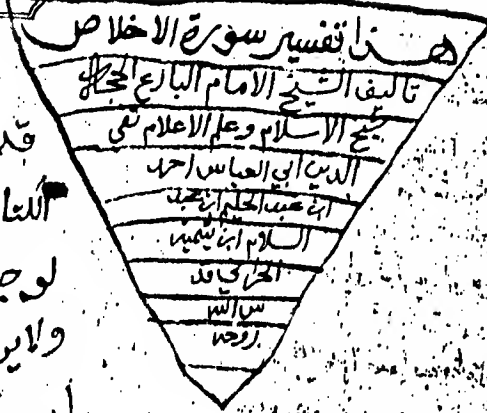 هذا تفسير سورة الاخلاص
تاليف الشيخ الامام البارع
شيخ الاسلام وعلم الاعلام تقي
الدين ابي العباس احمد
ابن عبد الحليم ابن عبد
السلام ابن تيميه
الحراني قد
س الله
روحه
لوجـ
ولاير